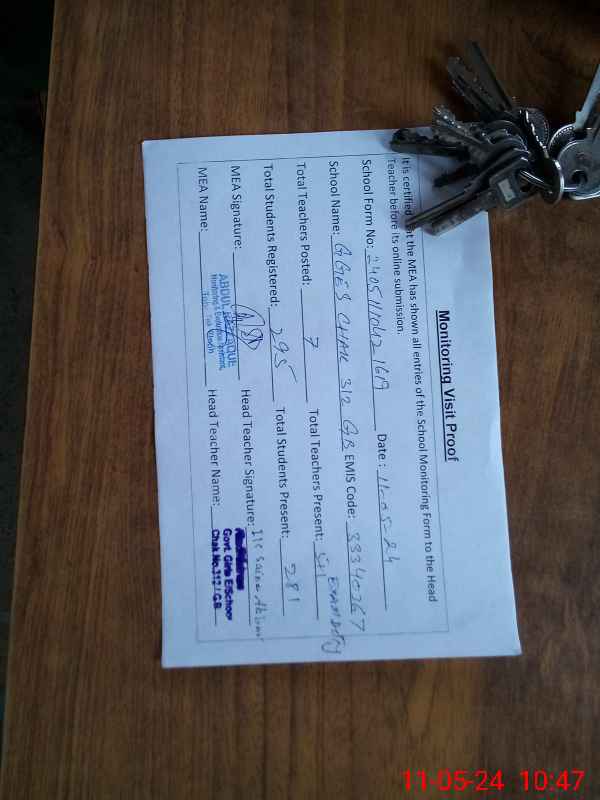 Monitoring Visit Proof
It is certified that the MEA has shown all entries of the School Monitoring Form to the Head
Teacher before its online submission.
School Form No: Date : 11-05-24
School Name: GGES CHAK 312 GB EMIS Code: 33340267
Total Teachers Posted: 7 Total Teachers Present:
Total Students Registered: 295 Total Students Present: 281
MEA Signature: Head Teacher Signature: I/C Saima
ABDUL
Monitoring & Evaluation
MEA Name: Head Teacher Name:
Govt. Girls E/School
Chak No.312/GB
11-05-24 10:47